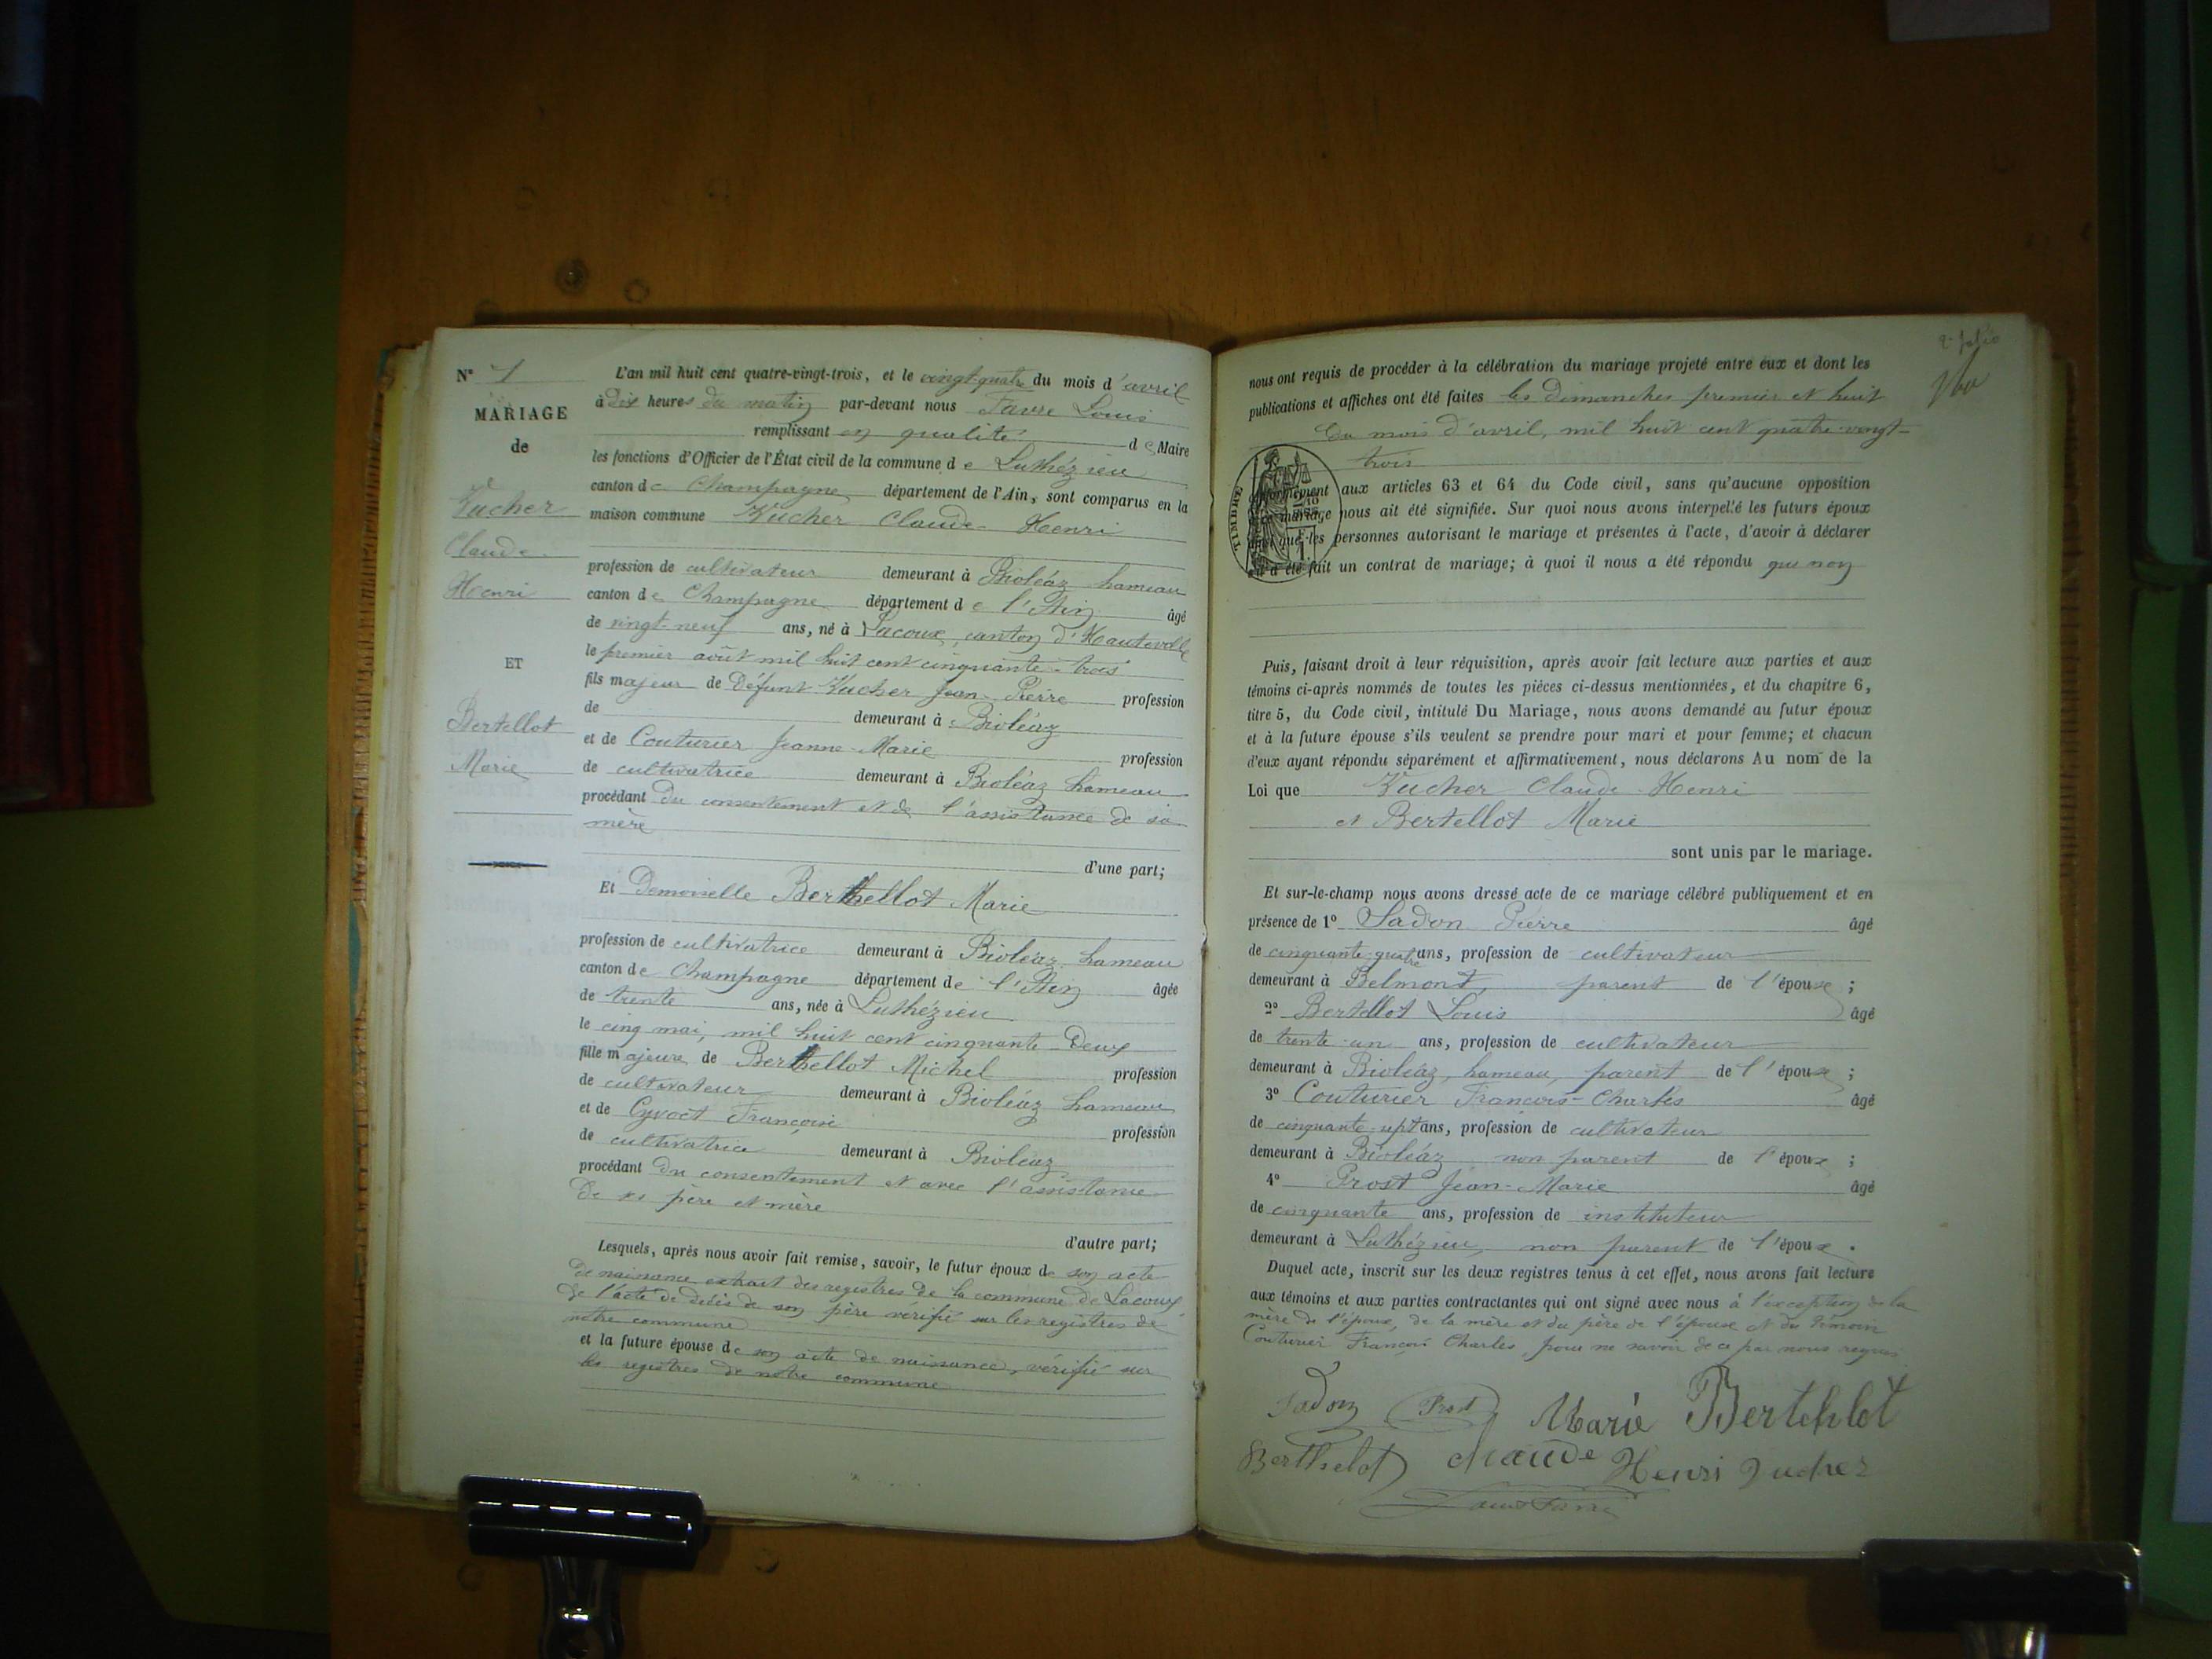 N° 1
MARIAGE
de
Vucher
Claude
Henri
ET
Bertellot
Marie
L'an mil huit cent quatre-vingt-trois, et le vingt-quatre du mois d'avril
à dix heures du matin par-devant nous Favre Louis
remplissant en qualité de Maire
les fonctions d'Officier de l'État civil de la commune de Luthézieu
canton de Champagne département de l'Ain, sont comparus en la
maison commune Vucher Claude Henri
profession de cultivateur demeurant à Bioléaz hameau
canton de Champagne département de l'Ain âgé
de vingt-neuf ans, né à Lacoux, canton d'Hauteville
le premier août mil huit cent cinquante-trois
fils majeur de Défunt Vucher Jean-Pierre profession
de demeurant à Bioléaz
et de Couturier Jeanne-Marie profession
de cultivatrice demeurant à Bioléaz hameau
procédant du consentement et de l'assistance de sa
mère
d'une part;
Et Demoiselle Berthellot Marie
profession de cultivatrice demeurant à Bioléaz hameau
canton de Champagne département de l'Ain âgée
de trente ans, née à Luthézieu
le cinq mai, mil huit cent cinquante-deux
fille majeure de Berthellot Michel profession
de cultivateur demeurant à Bioléaz hameau
et de Cyvoct Françoise profession
de cultivatrice demeurant à Bioléaz
procédant du consentement et avec l'assistance
de ses père et mère
d'autre part;
Lesquels, après nous avoir fait remise, savoir, le futur époux de son acte
de naissance extrait des registres de la commune de Lacoux
de l'acte de décès de son père vérifié sur les registres de
notre commune
et la future épouse de son acte de naissance, vérifié sur
les registres de notre commune
2e folio
nous ont requis de procéder à la célébration du mariage projeté entre eux et dont les
publications et affiches ont été faites les dimanches premier et huit
du mois d'avril, mil huit cent quatre-vingt-
trois
TIMBRE
conformément aux articles 63 et 64 du Code civil, sans qu'aucune opposition
à ce mariage nous ait été signifiée. Sur quoi nous avons interpellé les futurs époux
ainsi que les personnes autorisant le mariage et présentes à l'acte, d'avoir à déclarer
s'il a été fait un contrat de mariage; à quoi il nous a été répondu que non
Puis, faisant droit à leur réquisition, après avoir fait lecture aux parties et aux
témoins ci-après nommés de toutes les pièces ci-dessus mentionnées, et du chapitre 6,
titre 5, du Code civil, intitulé Du Mariage, nous avons demandé au futur époux
et à la future épouse s'ils veulent se prendre pour mari et pour femme; et chacun
d'eux ayant répondu séparément et affirmativement, nous déclarons Au nom de la
Loi que Vucher Claude Henri
et Bertellot Marie
sont unis par le mariage.
Et sur-le-champ nous avons dressé acte de ce mariage célébré publiquement et en
présence de 1° Sadon Pierre âgé
de cinquante-quatre ans, profession de cultivateur
demeurant à Belmont, parent de l'épouse;
2° Bertellot Louis âgé
de trente-un ans, profession de cultivateur
demeurant à Bioléaz, hameau, parent de l'épouse;
3° Couturier François-Charles âgé
de cinquante-sept ans, profession de cultivateur
demeurant à Bioléaz non parent de l'époux;
4° Prost Jean-Marie âgé
de cinquante ans, profession de instituteur
demeurant à Luthézieu, non parent de l'époux.
Duquel acte, inscrit sur les deux registres tenus à cet effet, nous avons fait lecture
aux témoins et aux parties contractantes qui ont signé avec nous à l'exception de la
mère de l'époux, de la mère et du père de l'épouse et du témoin
Couturier François Charles, pour ne savoir de ce par nous requis
Sadon Prost Marie Bertehlot
Berthelot Claude Henri Vucher
Louis Favre